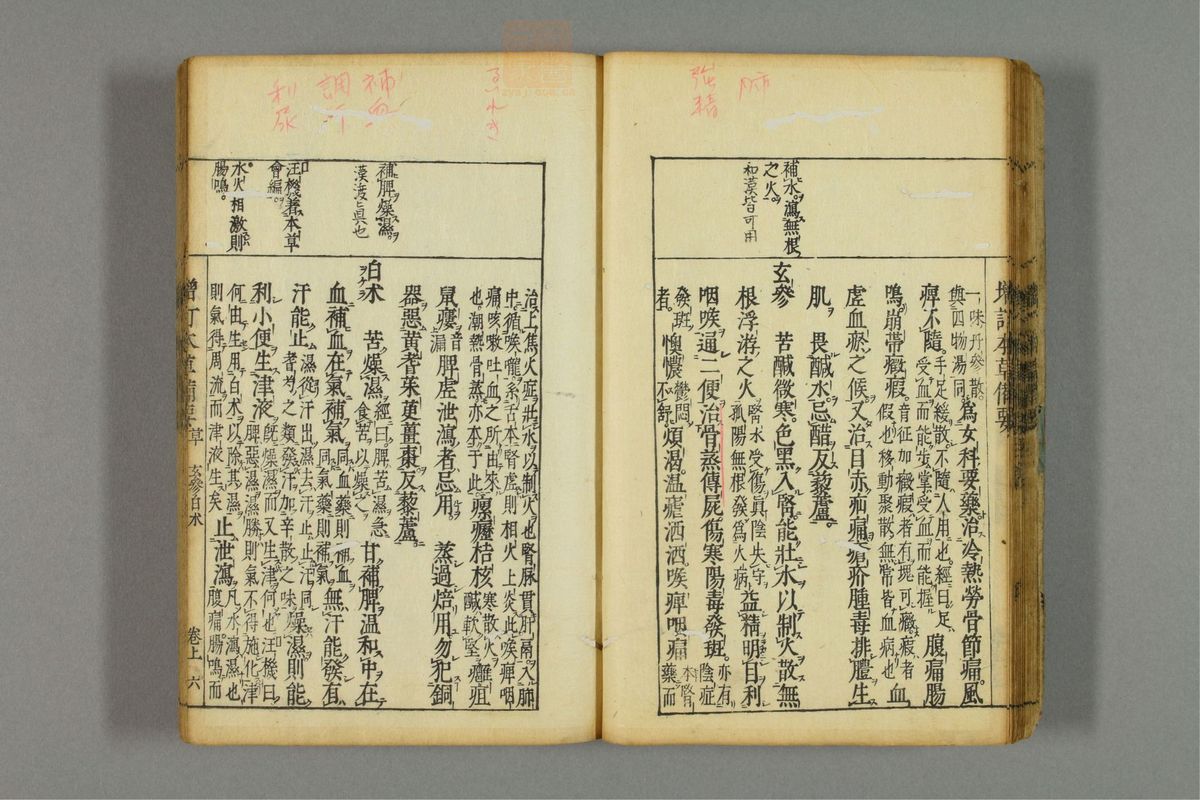 強精
補水。瀉無根
之火。
和漢皆可用
一味丹參散。
與四物湯同。爲女科要藥治冷熱勞骨節痛。風
痺不隨。手足緩散。不隨人用也。經曰。足
受血而能步。掌受血而能握。腹痛腸
鳴。崩帶癥瘕。音征加。癥者有塊可癥。瘕者
假也。移動聚散無常。皆血病也。血
虛血瘀之候。又治目赤疝痛瘡疥腫毒排膿生
肌。畏鹹水。忌醋。反藜蘆。
玄參 苦鹹微寒。色黑入腎。能壯水以制火。散無
根浮游之火 腎水受傷。眞陰失守。
孤陽無根。發爲火病。益精明目利
咽喉通二便。治骨蒸傳屍傷寒陽毒發斑。亦有
陰症
發斑
者。懊憹 鬱悶
不舒。煩渴。溫瘧洒洒。喉痺咽痛 本腎
藥而
補血
調汗
利尿
るいれき
補脾燥濕。
漢渡ヒ眞也
汪機著本草
會編。
水火相激則
腸鳴。
治上焦火症。壯水以制火也。腎脉貫肝膈。入肺
中。循喉嚨。系舌本。腎虛則相火上炎。此喉痺咽
痛。咳嗽吐血之所由來
也。潮熱骨蒸。亦本于此。瘰癧結核 寒散火
鹹軟堅。癰疽
鼠瘻 音
漏 脾虛泄瀉者忌用 蒸過焙用。勿犯銅
器。惡黃耆茱萸薑棗。反藜蘆。
白朮 苦燥濕 經曰。脾苦濕。急
食苦以燥之。甘補脾溫和中。在
血補血在氣補氣 同血藥則補血。
同氣藥則補氣。無汗能發。有
汗能止 濕從汗出。濕去汗止。止汗同
耆芍之類。發汗加辛散之味。燥濕則能
利小便生津液 旣燥濕而又生津何也。汪機曰。
脾惡濕。濕勝則氣不得施化。津
何由生。用白朮以除其濕。
則氣得周流。而津液生矣。止泄瀉 凡水瀉濕也。
腹痛腸鳴而
增訂本草備要 草 玄參白朮 卷上 六